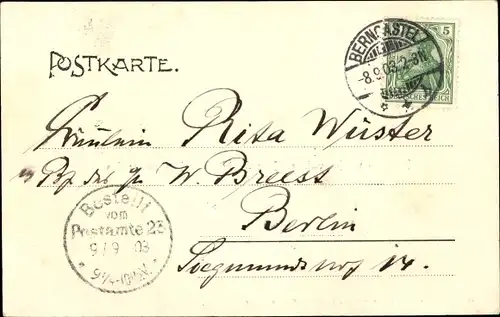 POSTKARTE.
BERNCASTEL
-8.9.03.2-3N
5
Fräulein Rita Wüster
W. Breest
Berlin
Siegmundshof 14.
Bestellt
vom
Postamte 23
9/9 03
9¼-10½V.